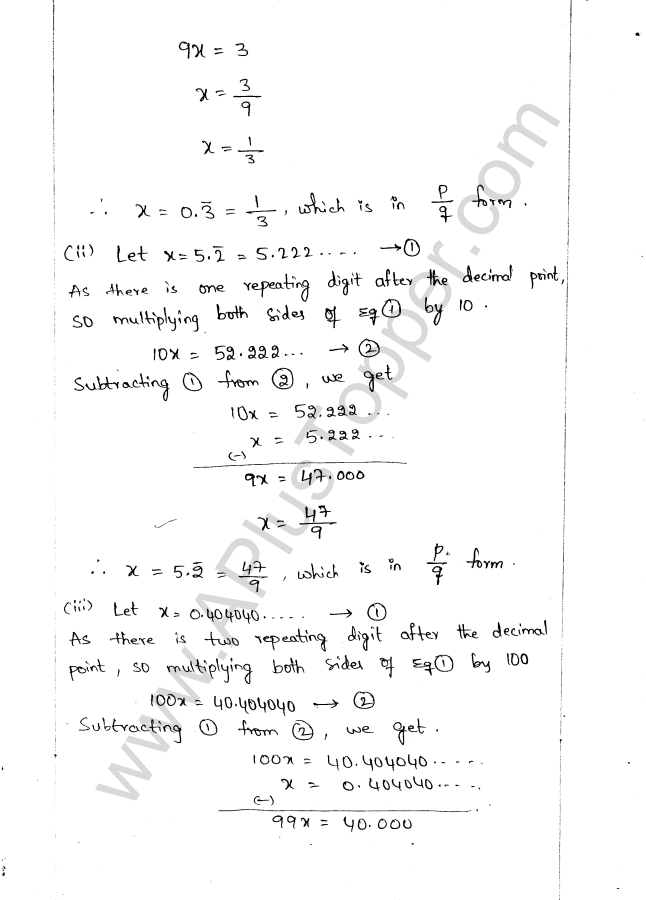 9x = 3
x = 3/9
x = 1/3
∴ x = 0.3̄ = 1/3, which is in p/q form.
(ii) Let x = 5.2̄ = 5.222.... → ①
As there is one repeating digit after the decimal point,
so multiplying both sides of Eq ① by 10.
10x = 52.222... → ②
Subtracting ① from ②, we get
10x = 52.222...
x = 5.222...
(-)
9x = 47.000
x = 47/9
∴ x = 5.2̄ = 47/9, which is in p/q form.
(iii) Let x = 0.404040..... → ①
As there is two repeating digit after the decimal
point, so multiplying both sides of Eq ① by 100
100x = 40.404040 → ②
Subtracting ① from ②, we get.
100x = 40.404040.....
x = 0.404040.....
(-)
99x = 40.000
www.APlusTopper.com